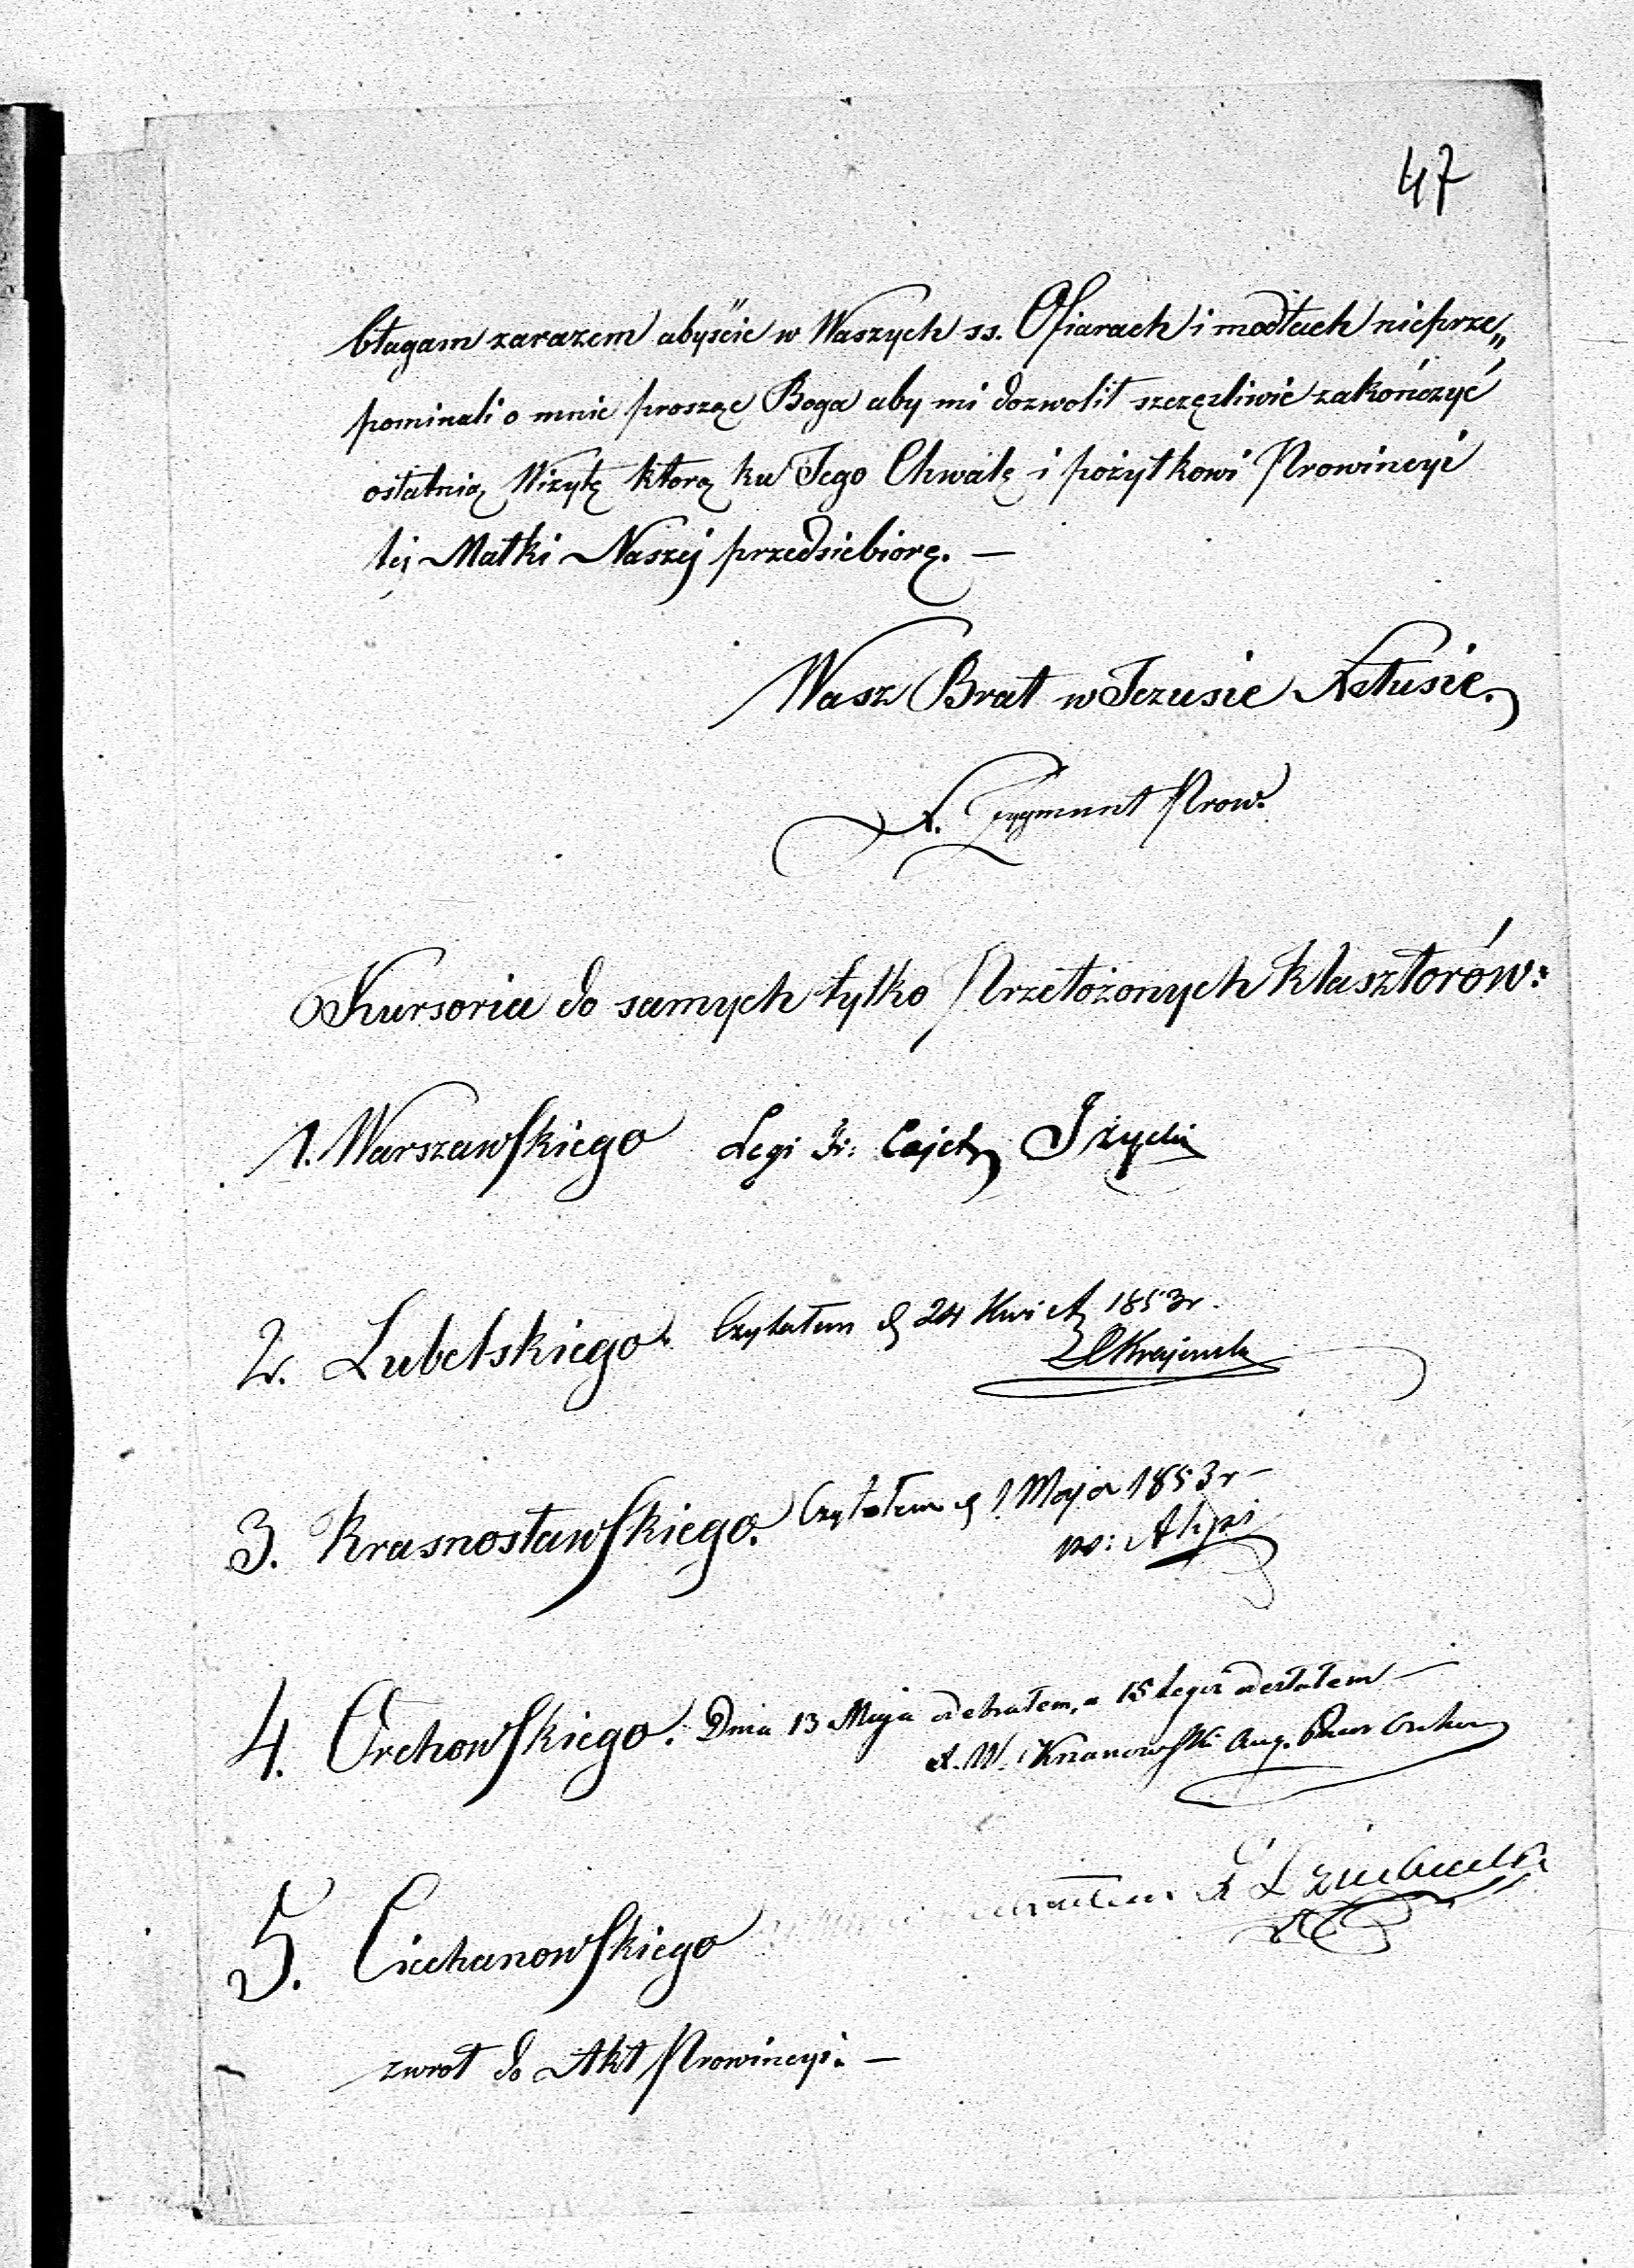 47
błagam zarazem abyście w Waszych ss. Ofiarach i modłach nieprze„
pominali o mnie prosząc Boga aby mi dozwolił szczęśliwie zakończyć
ostatnią Wizytę którą ku Jego Chwałę i pożytkowi Prowincyi
tej Matki Naszej przedsiebiorę. —
Wasz Brat w Jezusie Xstusie.
X. Zygmunt Prow.
Kursoria do samych tylko Przełożonych klasztorów:
1. Warszawskiego Legi Fr: Cajet
2. Lubelskiego. Czytałem d 24 Kwiet 1853 r.
3. Krasnostawskiego. Czytałem d 1 Maja 1853 r —
Alipi
4. Orchowskiego. Dnia 13 Maja odebrałem, a 15 tegoż odesłałem —
X. W. Krzanowski Aug.
5. Ciechanowskiego
zwrot do Akt Prowincyi. —